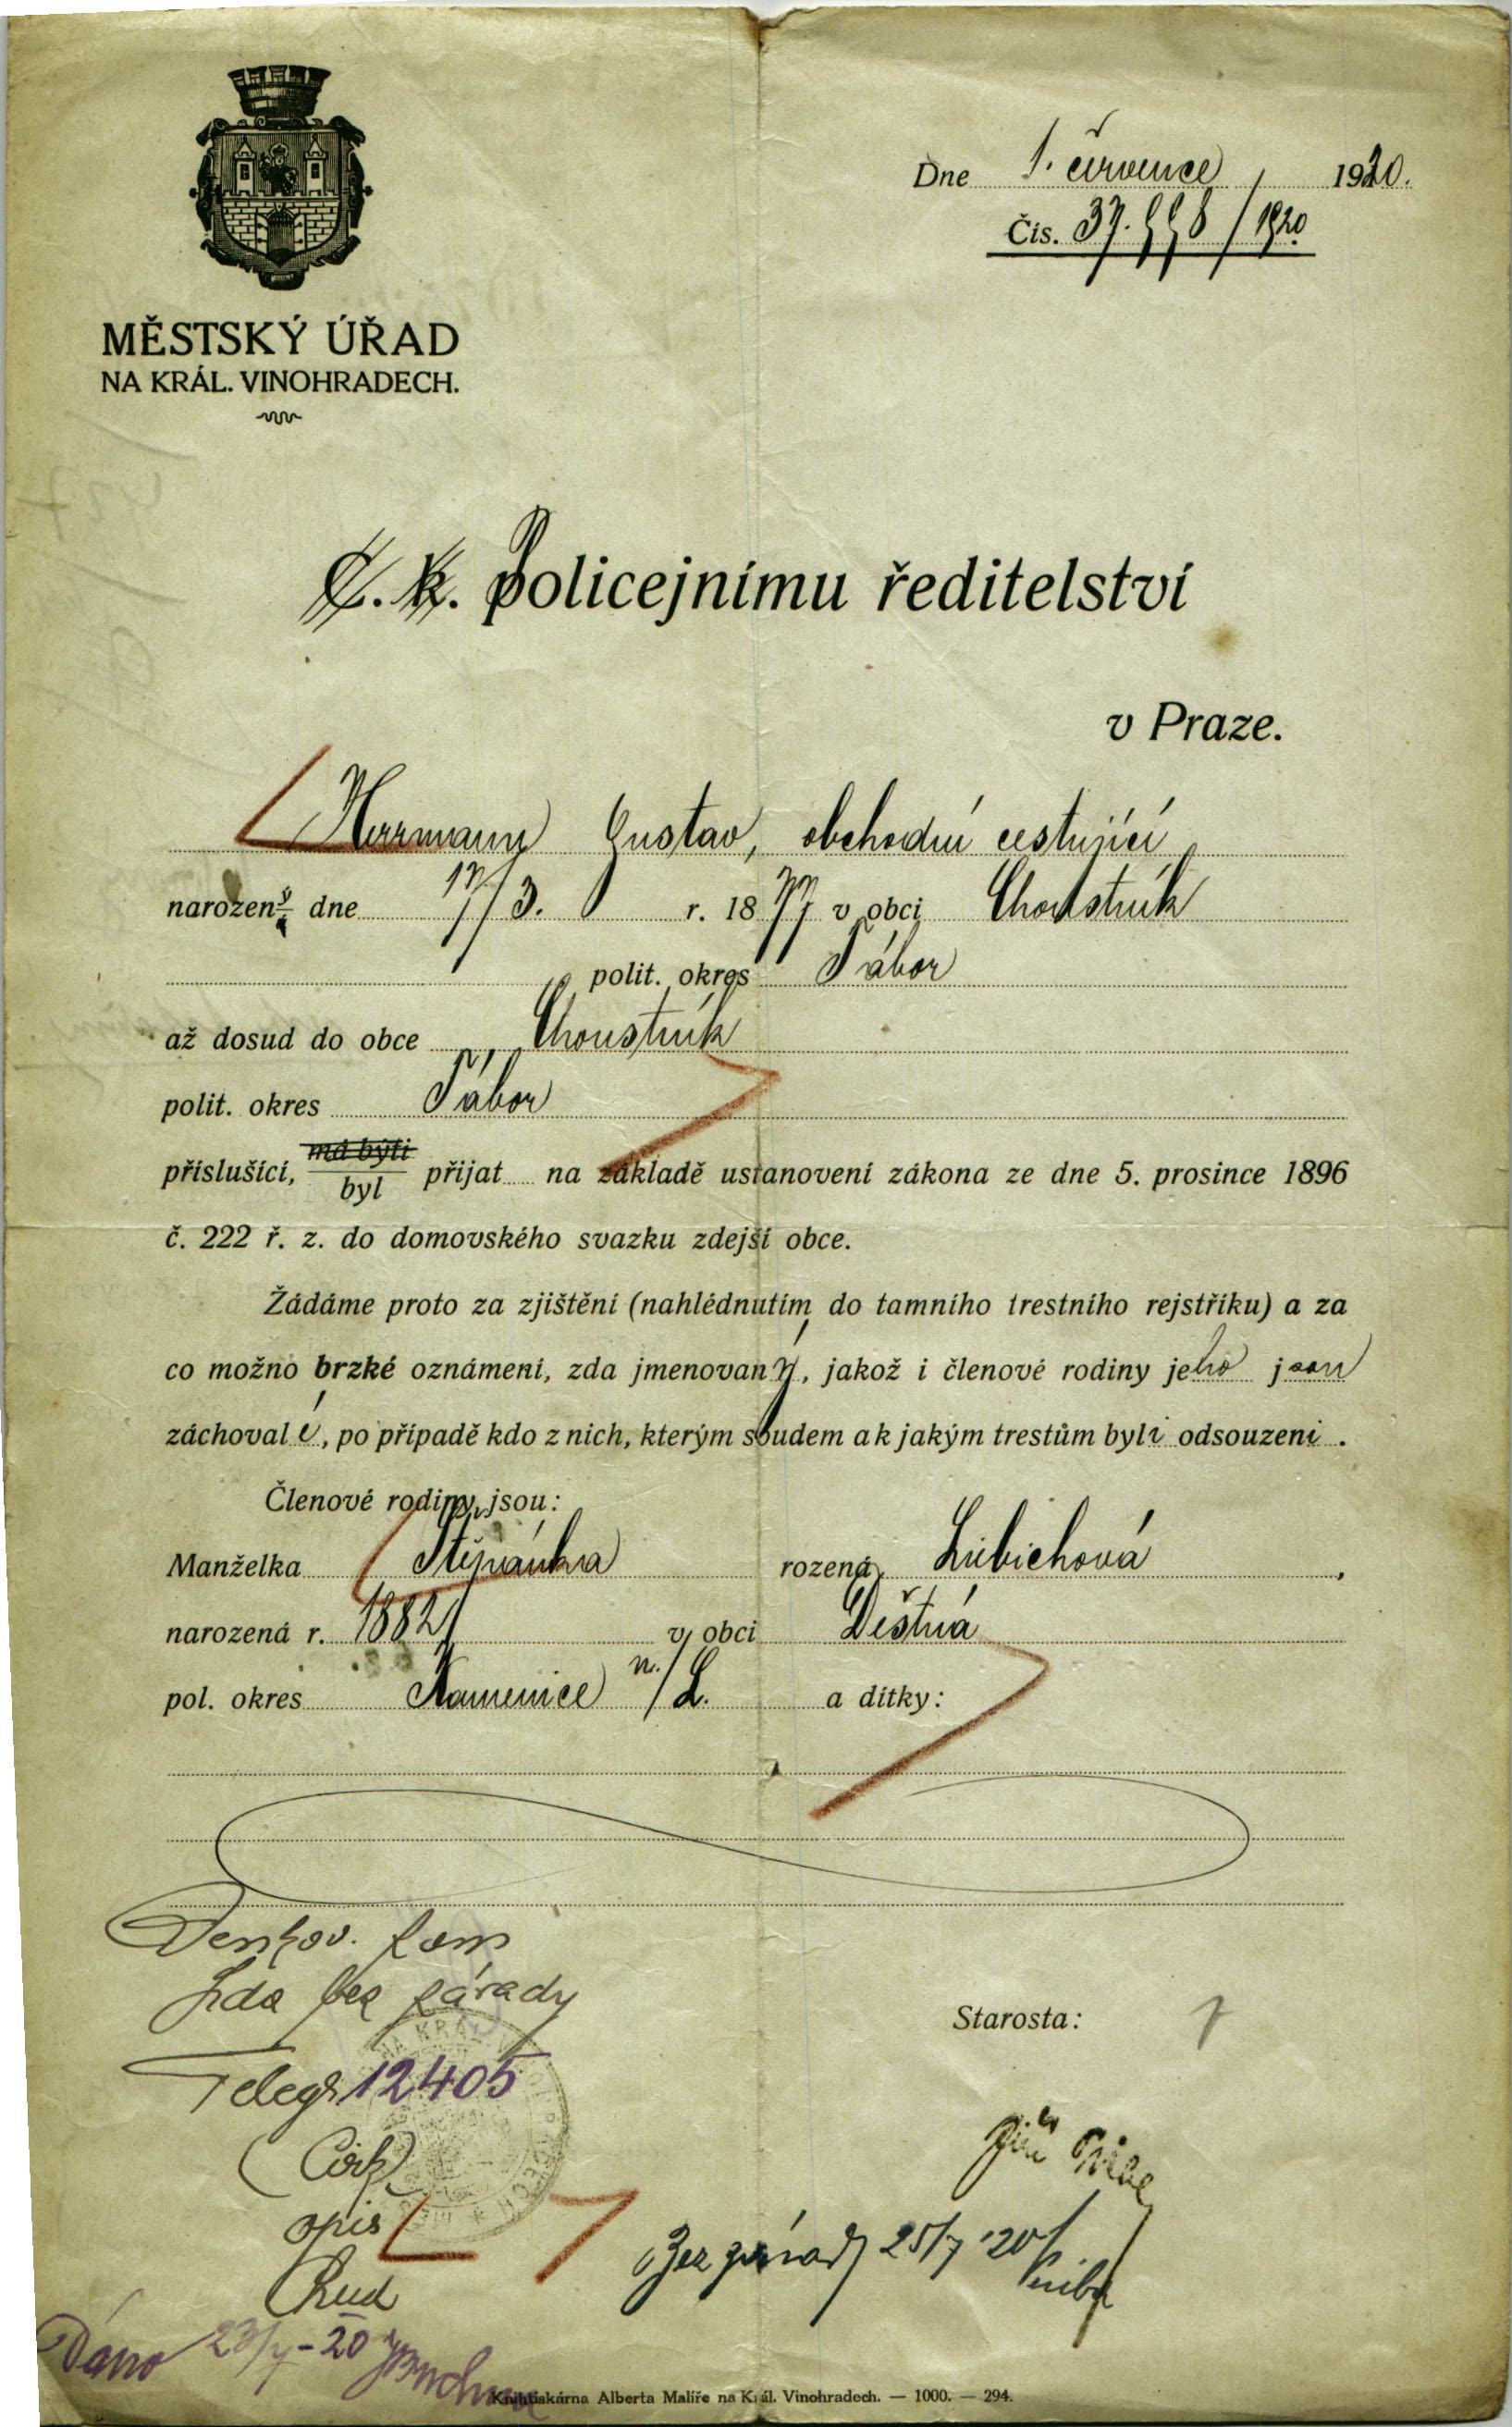 Dne 1. července 1920.
Čís. 37.558/1920
MĚSTSKÝ ÚŘAD
NA KRÁL. VINOHRADECH.
C. k. Policejnímu ředitelství
v Praze.
Herrmann Gustav, obchodní cestující
narozený dne 17/3. r. 1877 v obci Choustník
polit. okres Tábor
až dosud do obce Choustník
polit. okres Tábor
příslušící, má býti
byl přijat na základě ustanovení zákona ze dne 5. prosince 1896
č. 222 ř. z. do domovského svazku zdejší obce.
Žádáme proto za zjištění (nahlédnutím do tamního trestního rejstříku) a za
co možno brzké oznámení, zda jmenovaný, jakož i členové rodiny jeho jsou
záchovalí, po případě kdo z nich, kterým soudem a k jakým trestům byli odsouzeni.
Členové rodiny jsou:
Manželka Štěpánka rozená Liebichová,
narozená r. 1882 v obci Deštná
pol. okres Kamenice n./L. a dítky:
zda bez závady
Starosta:
Telegr 12405
opis
Bez závady 25/7 '20
Dáno 23/7-20
Knihtiskárna Alberta Malíře na Král. Vinohradech. — 1000. — 294.